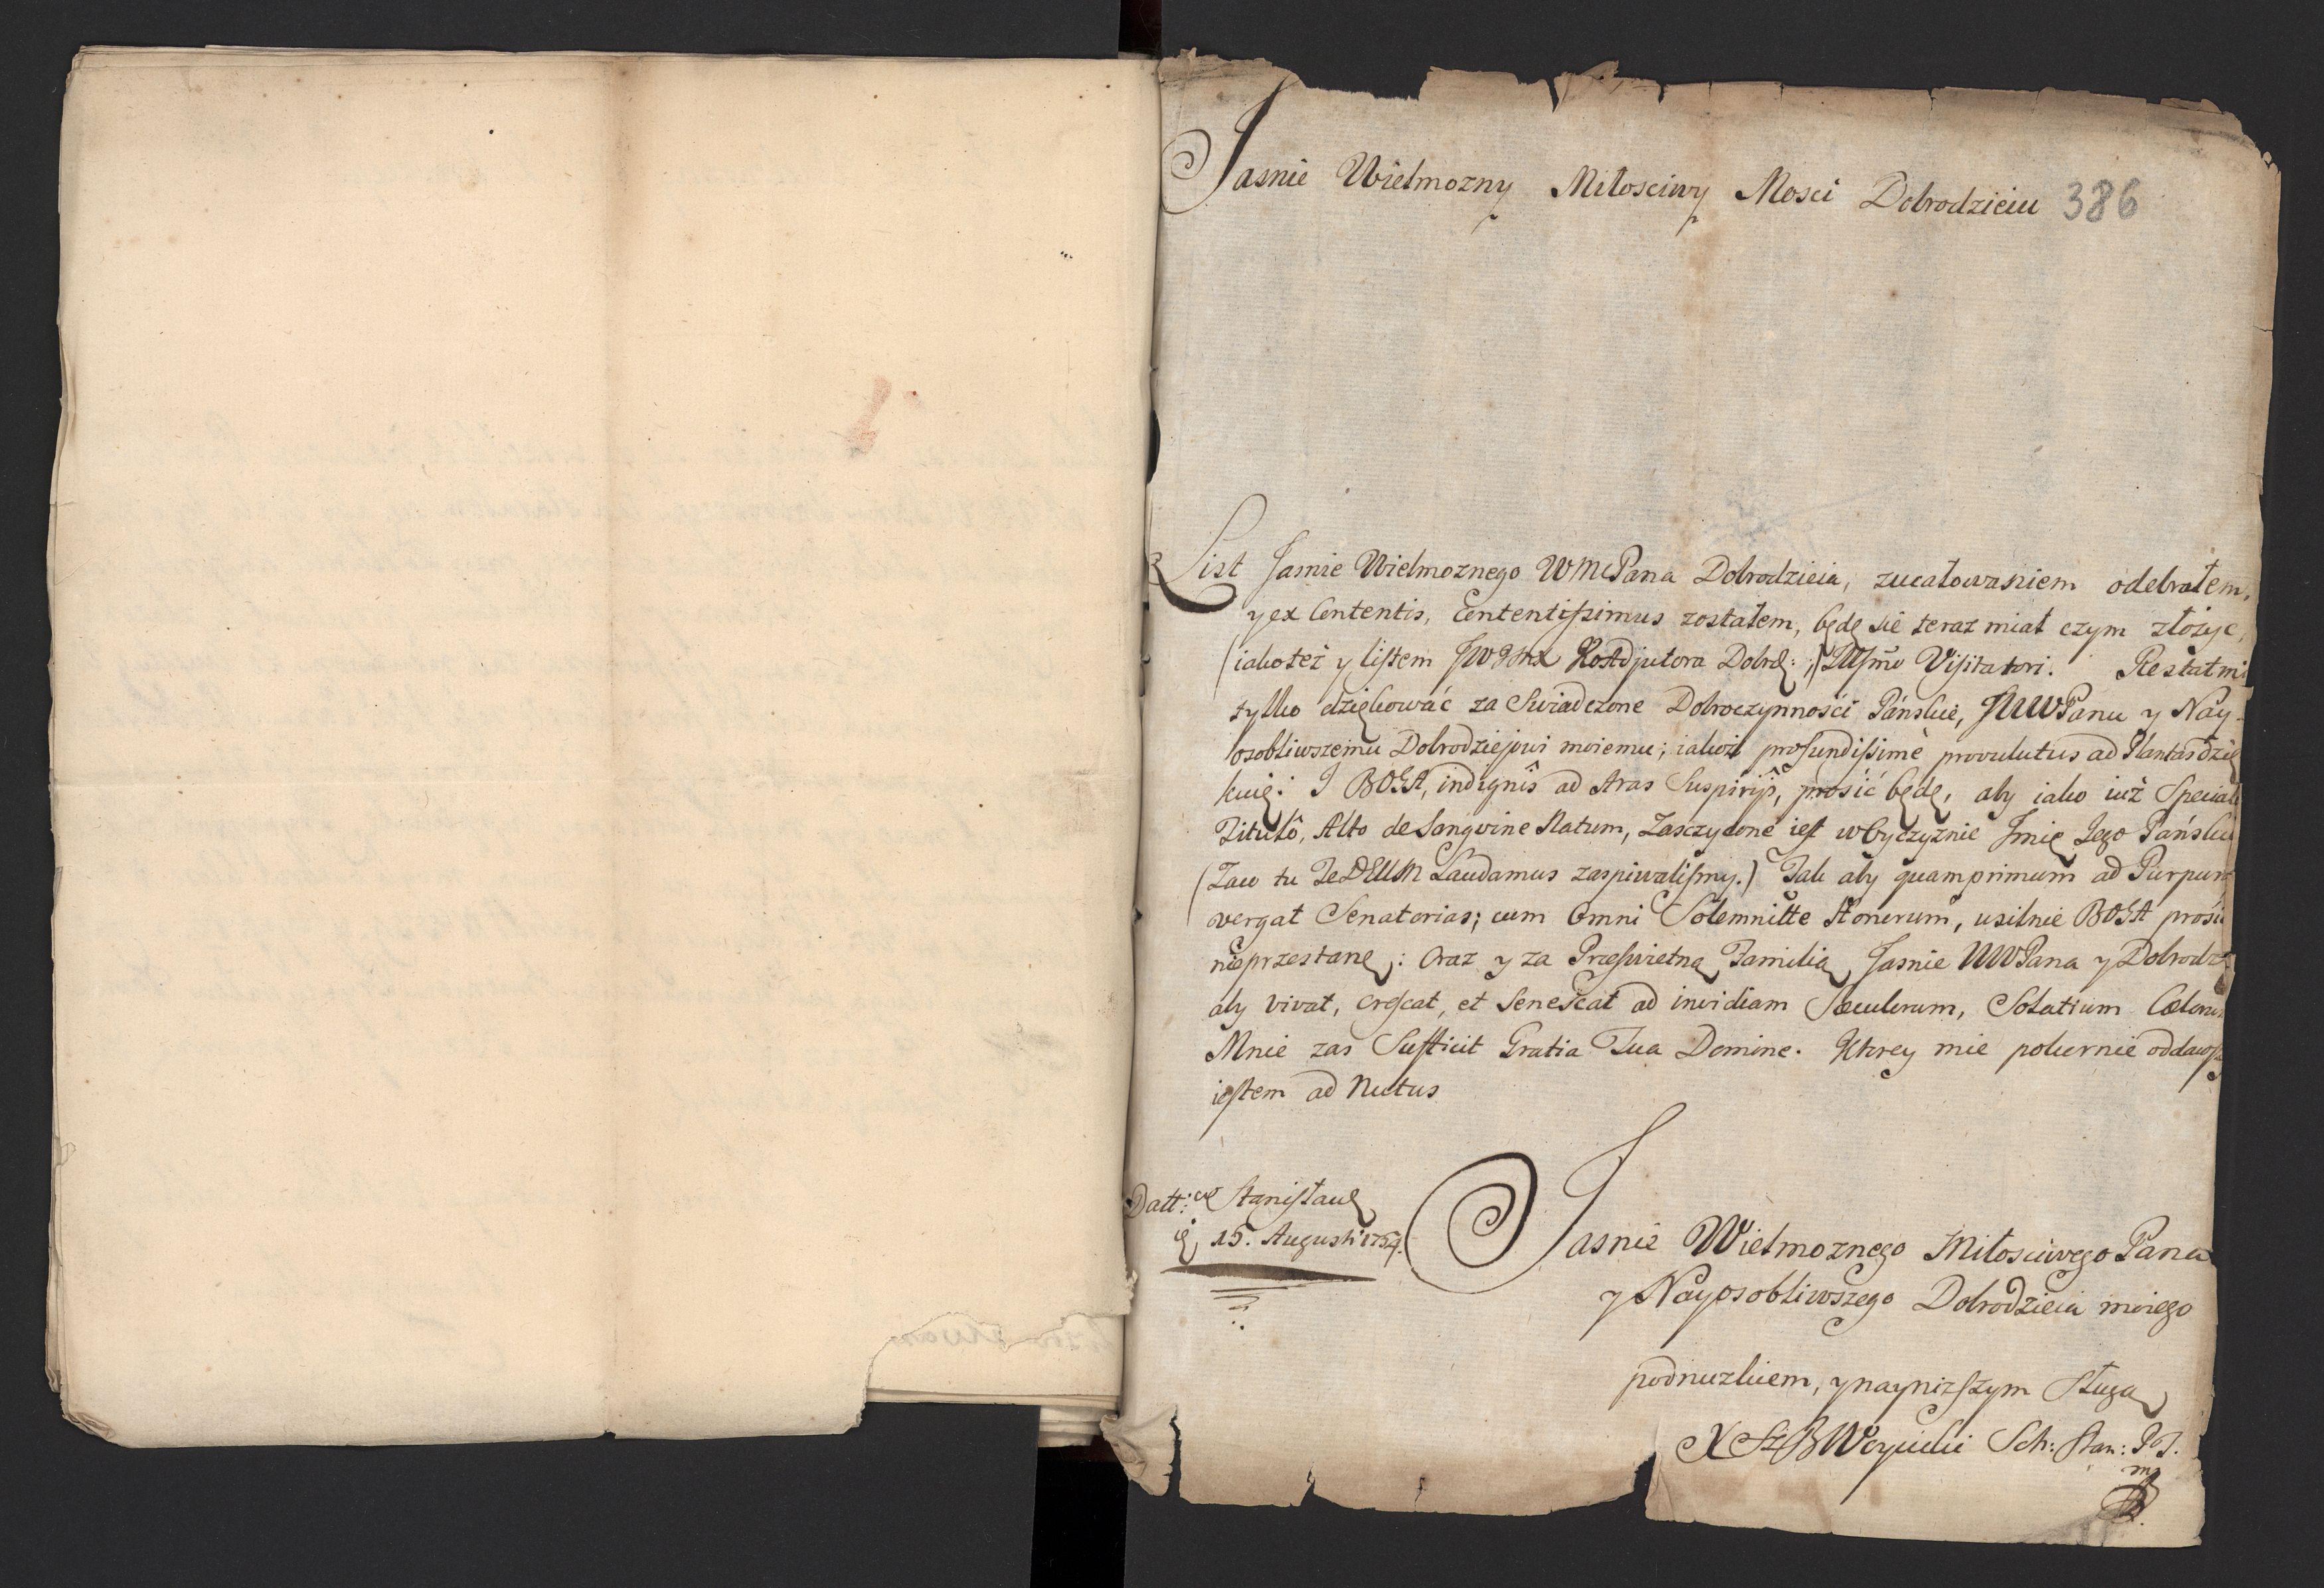 Jasnie Wielmozny Miłosciwy Mosci Dobrodzieiu 386
List Jasnie Wielmoznego WMcPana Dobrodzieia, zucałowaniem odebrałem,
y ex Contentis, Contentissimus zostałem, będę sie teraz miał czym złożyc,
(iako też y listem Koadjutora Dobrd:) Illsmo Visitatori. Restat mi
tylko dziękować za Swiadczone Dobroczynności Pańskie, JWWPanu y Nay-
osobliwszemu Dobrodziejowi moiemu; iakoż profundissimè provolutus ad Plantas dzię
kuię: I BOGA, indignîs ad Aras Suspirijs, prosić będę, aby iako iuż Speciali
Titulô, Alto de Sangvine Natum, Zasczycone iest w Oyczyznie Imię Jego Pańskie
(Zaco tu Te DEUM Laudamus zaspiwalismy.) Tak aby quamprimum ad Purpuras
vergat Senatorias; cum Omni Solemnitte Honorum, usilnie BOGA prosic
nieprzestanę: Oraz y za Przeswietną Familią Jasnie WWPana y Dobrodz
aby vivat, crescat, et Senescat ad invidiam Sæculorum, Solatium Cælorum
Mnie zas Sufficit Gratia Tua Domine. Ktorey mie pokornie oddawsz
iestem ad Nutus
Datt: w Stanisławę
15. Augusti 1754.
Jasnie Wielmoznego Miłosciwego Pana
y Nayosobliwszego Dobrodzieia moiego
podnuzkiem, y naynizszym Sługą
X Sch: Stan: P J.
mp